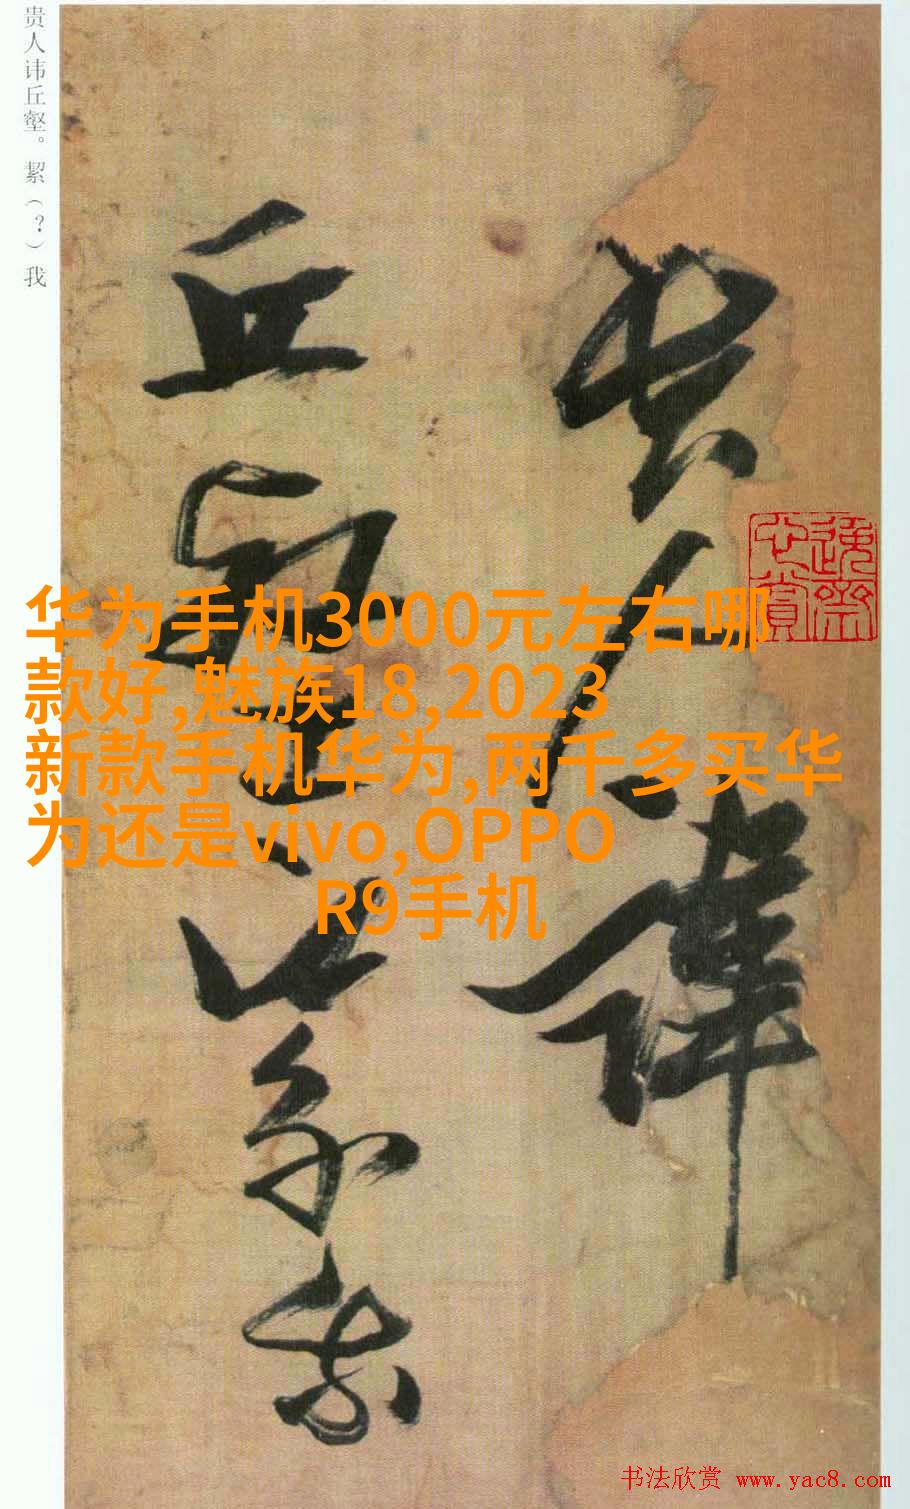 贵人讳丘壑。絜（？）我
贵人讳
丘壑之以絜我
华为手机3000元左右哪
款好,魅族18,2023
新款手机华为,两千多买华
为还是vivo,OPPO
R9手机
书法欣赏 www.yac8.com